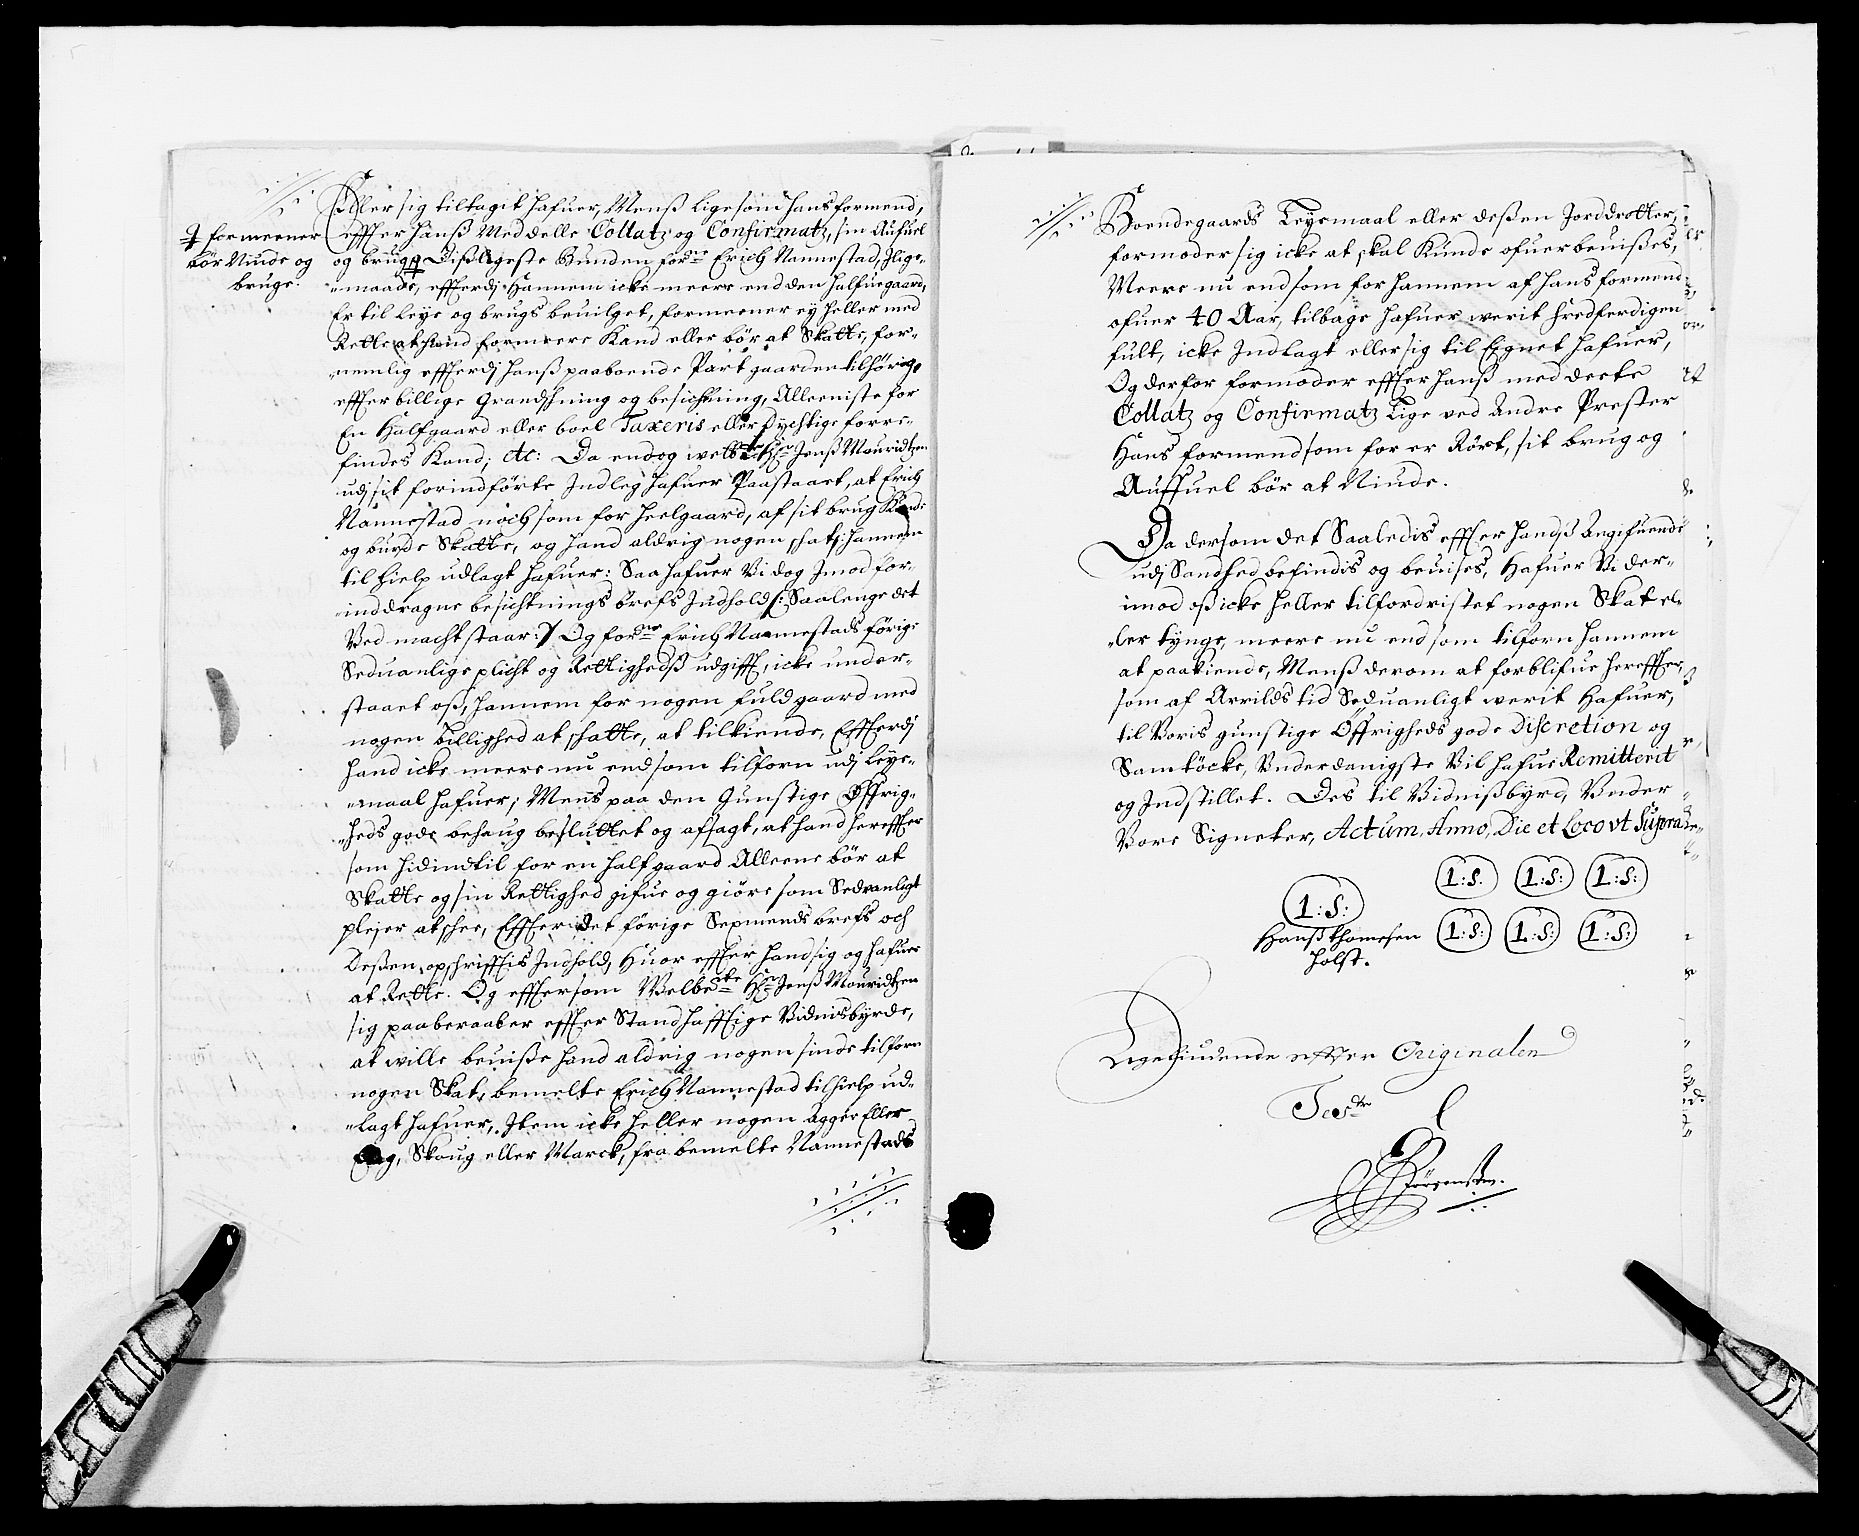 Eller sig tiltagit hafuer, Menß ligesom hans formend,
effter hanß Meddelte Collatz og Confirmatz, sin Aufuel
‡ formeener
bör Niude og
bruge.
og bruge ‡ Dißligeste Bunden forne Erich Nannestad, Jlige„
„maade, effterdj Hannem icke meere end den halfue gaard,
Er til leye og brugs beuilget, formeener ey heller med
Rette at hand formeere Kand eller bör at Skatte, for„
„nemlig effterdj hanß paaboende Part gaarden tilhörig,
effter billige Grandskning og besichtning, Alleeniste for
En Halfgaard eller boel Taxeris eller Dychtige forre„
findes Kand; etc: Da endog welbte Hr Jenß Mouridtzen
udj sit forindförte Indleg hafuer Paastaaet, at Erich
Nannestad noch som for heelgaard, af sit brug Kunde
og burde Skatte, og hand aldrig nogen skatz hannem
til hielp udlagt hafuer: Saa hafuer Vi dog Jmod for„
inddragne besichtnings brefs Indhold /: Saalenge det
Ved macht staar :/ Og forne Erich Nannestads förige
Seduanlige plicht og Rettighedß udgifft, icke under„
staaet oß, hannem for nogen fuldgaard med
nogen billighed at skatte, at tilkiende, Effterdj
hand icke meere nu end som tilforn udj Leye„
„maal hafuer; Menß paa den Gunstige Öffrig„
„heds gode behaug besluttet og afsagt, at hand hereffter
som hidindtil for en halfgaard Alleene bör at
Skatte og sin Rettighed gifue og giöre som Sedvanligt
plejer at skee, Effter det förige Sexmends brefs och
Deßen opschrifftis Indhold, Huor effter hand sig og hafuer
at Rette. Og efftersom Welbete Hr Jenß Mouridtzen
sig paaberaaber effter Standhafftige Vidnisbyrde,
at wille beuiße hand aldrig nogen sinde tilforn
nogen Skat, bemelte Erich Nannestad til hielp ud„
„lagt hafuer, Item icke heller nogen Agger Eller
Eng, Skoug eller Marck, fra bemelte Nannestads
Boendegaards Leyemaal eller deßen Jorddrotter,
formoder sig icke at skal Kunde ofuerbeuißes,
Meere nu end som for hannem af hans formend
ofuer 40 Aar, tilbage hafuer werit fredferdigen
fult, icke Indlagt eller sig til Egnet hafuer,
Og derfor formoder effter hanß meddeete
Collatz og Confirmatz Lige ved Andre Prester
Hans formend som for er Rört, sit brug og
Auffuel bör at Niude.
Da dersom det Saaledis effter handß Angifuende
udj Sandhed befindis og beuises, Hafuer Vi der„
imod oß icke heller tilfordristet nogen Skat el„
„ler tynge, meere nu end som tilforn hannem
at paakiende, Menß derom at forblifue hereffter,
som af Arrilds tid Seduanligt werit Hafuer,
til Voris gunstige Öffrigheds gode Discretion og
Samtöcke, Vnderdanigste Vil hafue Remitterit
og Indstillet. Des til Vidnißbyrd, Vnder
Vore Signeter, Actum, Anno, Die et Loco vt Supra
L:S: L:S. L:S: L:S:
Hanß thomesen
holst.
L:S: L:S: L:S:
Ligeliudende effter Originalen
Teste